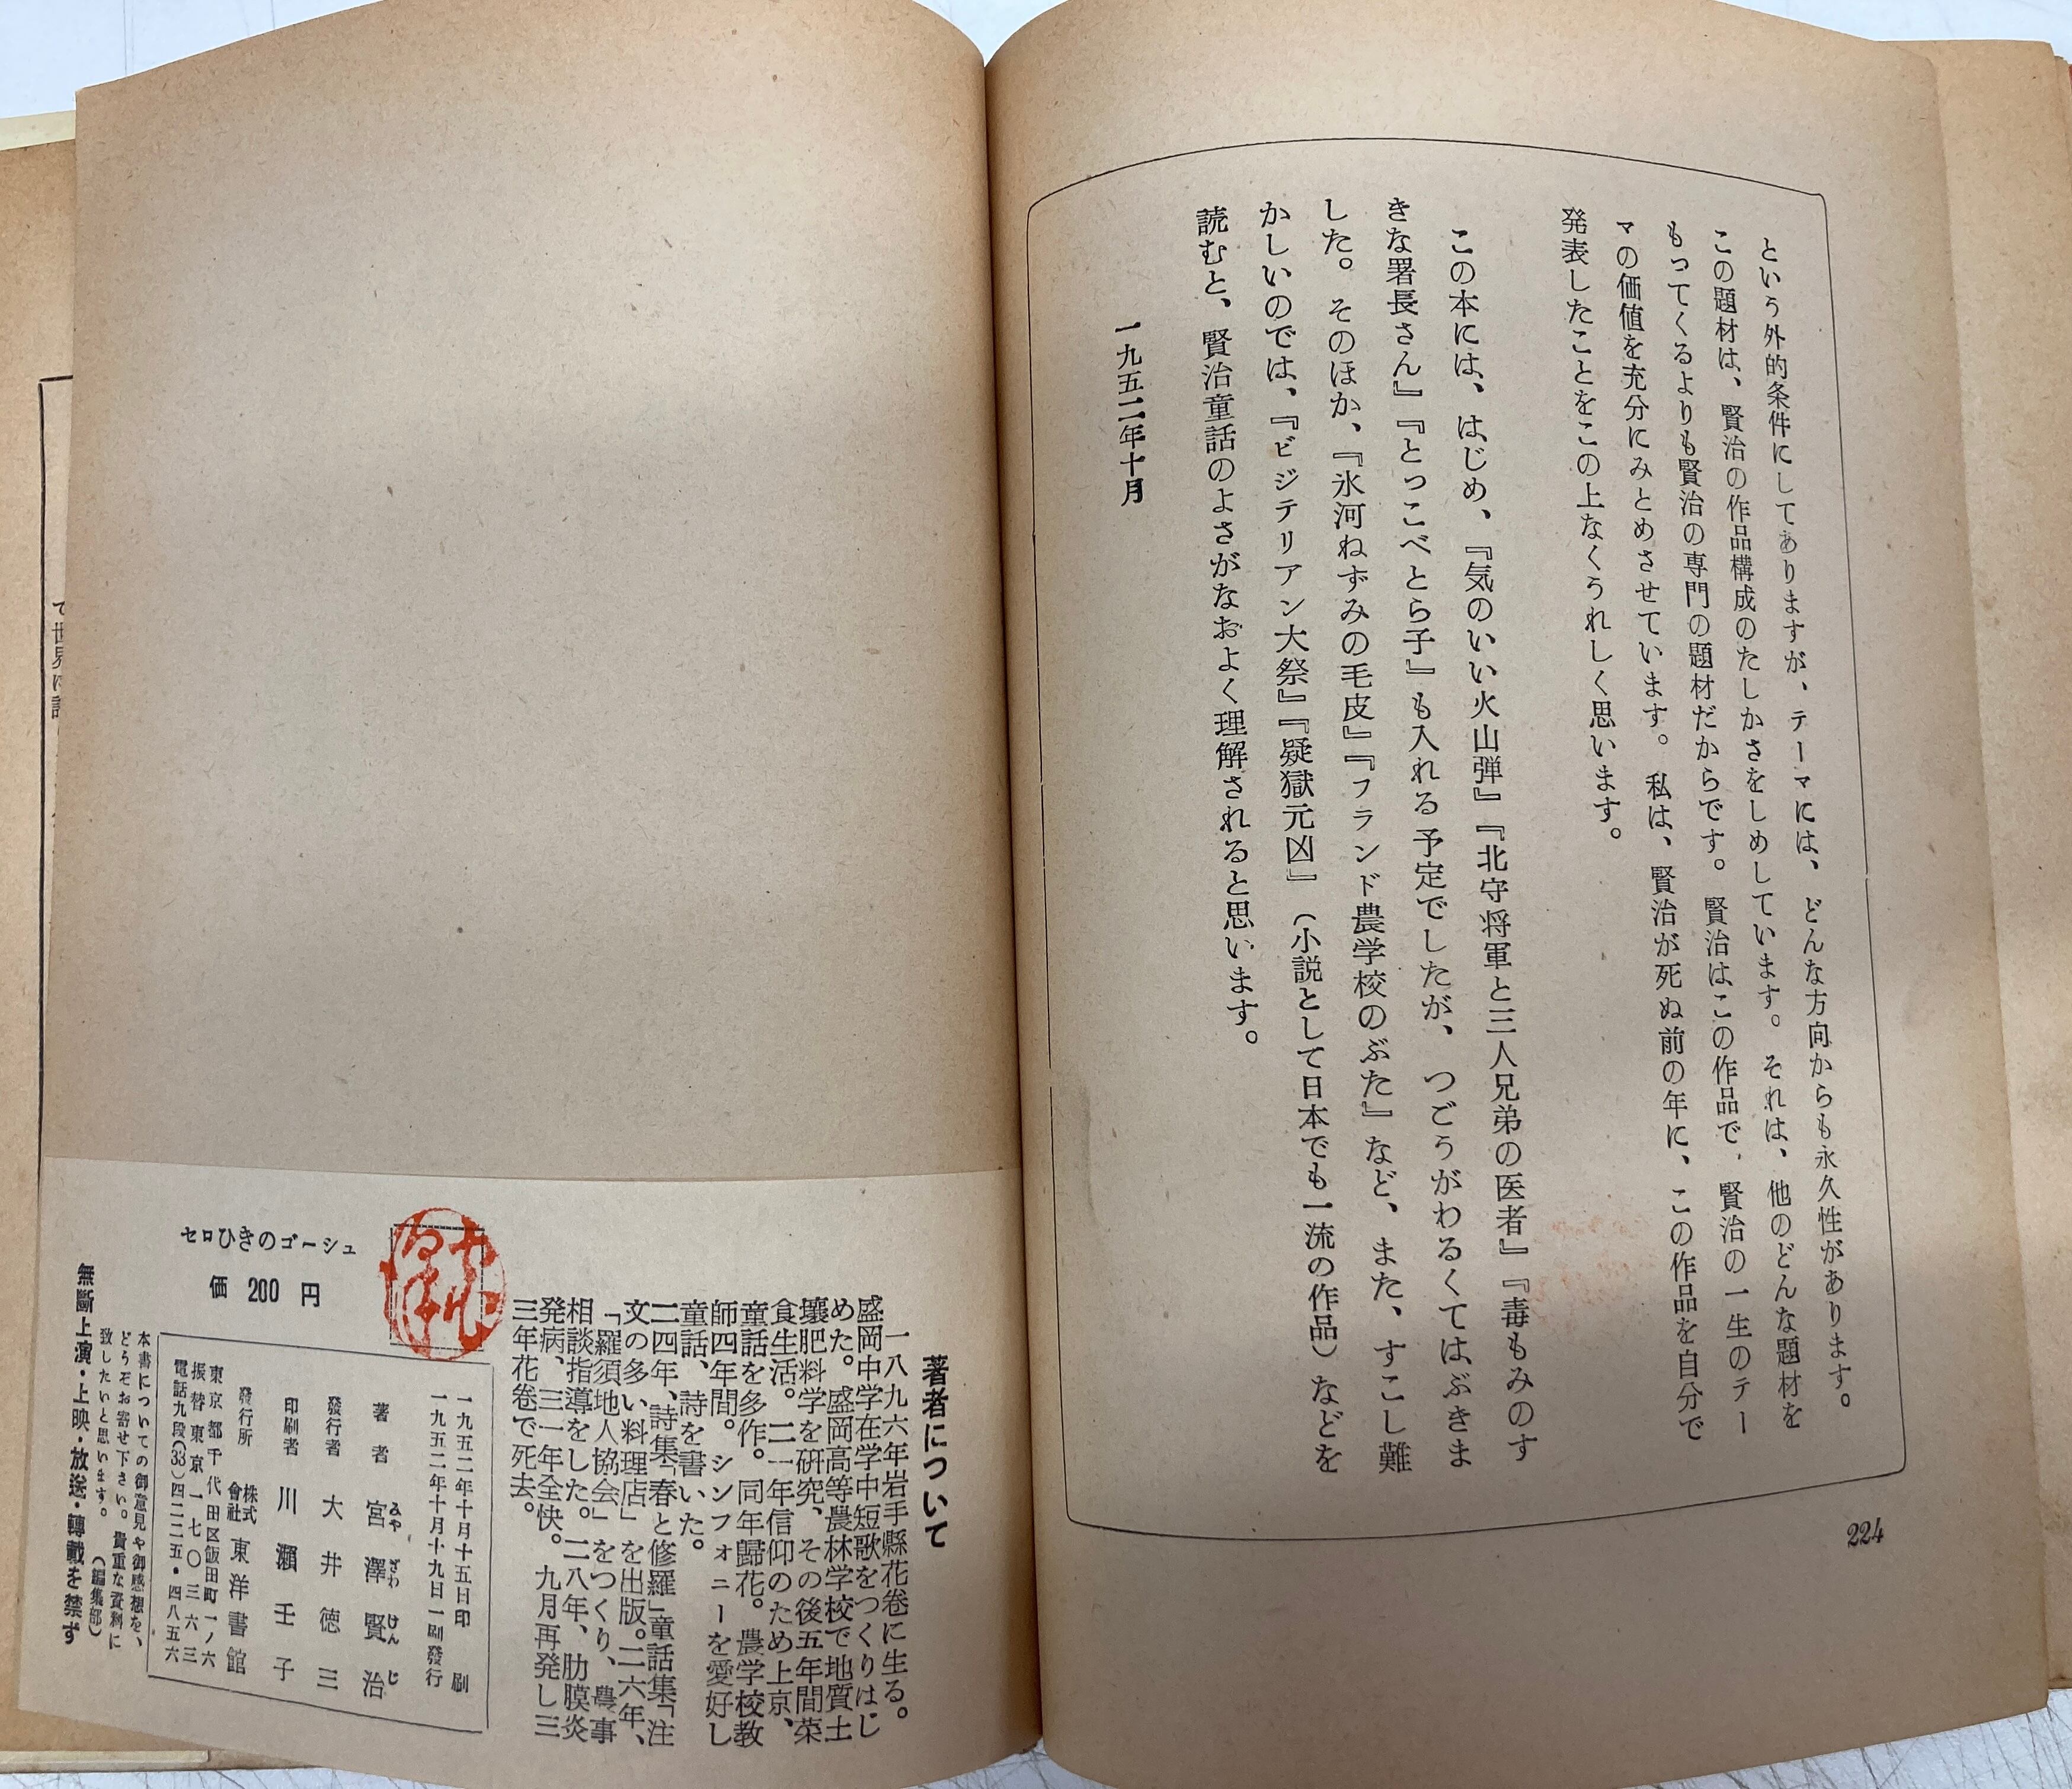 という外的条件にしてありますが、テーマには、どんな方向からも永久性があります。
この題材は、賢治の作品構成のたしかさをしめしています。それは、他のどんな題材を
もってくるよりも賢治の専門の題材だからです。賢治はこの作品で、賢治の一生のテー
マの価値を充分にみとめさせています。私は、賢治が死ぬ前の年に、この作品を自分で
発表したことをこの上なくうれしく思います。
この本には、はじめ、『気のいい火山弾』『北守将軍と三人兄弟の医者』『毒もみのす
きな署長さん』『とっこべとら子』も入れる予定でしたが、つごうがわるくてはぶきま
した。そのほか、『氷河ねずみの毛皮』『フランド農学校のぶた』など、また、すこし難
かしいのでは、『ビジテリアン大祭』『疑獄元凶』(小説として日本でも一流の作品)などを
読むと、賢治童話のよさがなおよく理解されると思います。
一九五二年十月
224
著者について
一八九六年岩手縣花巻に生る。
盛岡中学在学中短歌をつくりはじ
めた。盛岡高等農林学校で地質土
壤肥料学を研究、その後五年間菜
食生活。二一年信仰のため上京、
童話を多作。同年歸花。農学校教
師四年間。シンフォニーを愛好し
童話、詩を書いた。
二四年、詩集「春と修羅」童話集「注
文の多い料理店」を出版。二六年、
「羅須地人協会」をつくり、農事
相談指導をした。二八年、肋膜炎
発病、三一年全快。九月再発し三
三年花卷で死去。
セロひきのゴーシュ
価 200 円
一九五二年十月十五日印刷
一九五二年十月十九日一刷發行
著者 宮澤賢治
みやざわけんじ
發行者 大井徳三
印刷者 川瀬壬子
發行所 株式會社 東洋書館
東京都千代田区飯田町一ノ六
振替東京一七〇三六三
電話九段(33)四二二五・四八五六
本書についての御意見や御感想を、
どうぞお寄せ下さい。貴重な資料に
致したいと思います。(編集部)
無斷上演・上映・放送・轉載を禁ず
で世界に